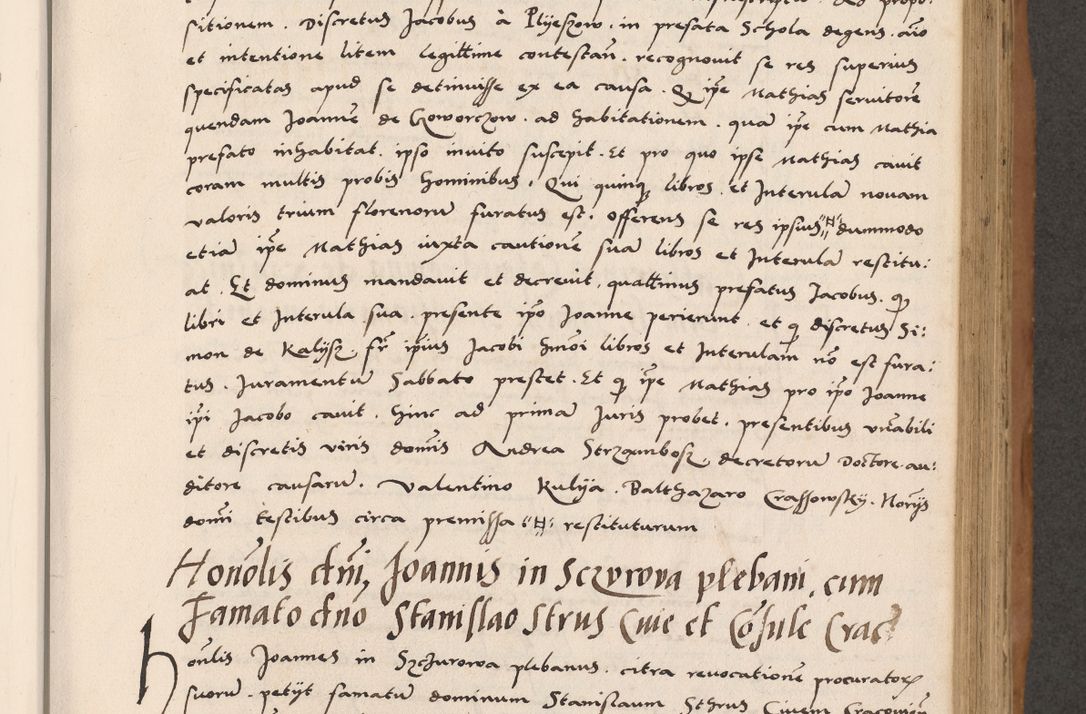 sitionem . Discretus Jacobus à Plyeszow . in prefata Schola degens . aīo
et intentione litem legittime contestan̄ . recognovit se res superius
specificatas apud se detinuisse ex ea causa . Q ip̄e Mathias servitorē
quendam Joannē de Goworczow . ad habitationem . qua ip̄e cum Mathia
prefato inhabitat . ipso invito suscepit . Et pro quo ipse Mathias cavit
coram multis probis hominibus . Qui quinq libros . et Interulā novam
valoris trium florenorū furatus est . offerens se res ipsius "H" dummodo
etiā ip̄e Mathias iuxta cautionē suā libros et Interulā restitu:
at . Et dominus mandavit et decrevit , quattinus prefatus Jacobus . q
libri et Interula sua . presente ip̄o Joanne perierunt . et q discretus Si:
mon de Kalysz . fr̄ ip̄ius Jacobi hm̄oi libros et Interulam nō est fura:
tus . Juramentū Sabbato prestet . Et q ip̄e Mathias pro ip̄o Joanne
ip̄i Jacobo cavit . hinc ad primā Juris probet . presentibus vn̄abili
et discretis viris domīs Andrea Strzambosz . decretorū Doctore . au:
ditore causarū . Valentino Kulija . Balthazaro Crassowsky . Norijs
domī testibus circa premissa "H" restituturum
Honōlis dn̄i, Joannis in Sczurova plebani, cum
Famato dn̄o Stanislao Strus Cive et Cōsule Crac
honlis Joannes in Szczurowa plebanus . citra revocationē procurator
suorū . petijt famatū dominum Stanislaum Sthrus Civem Cracovien̄